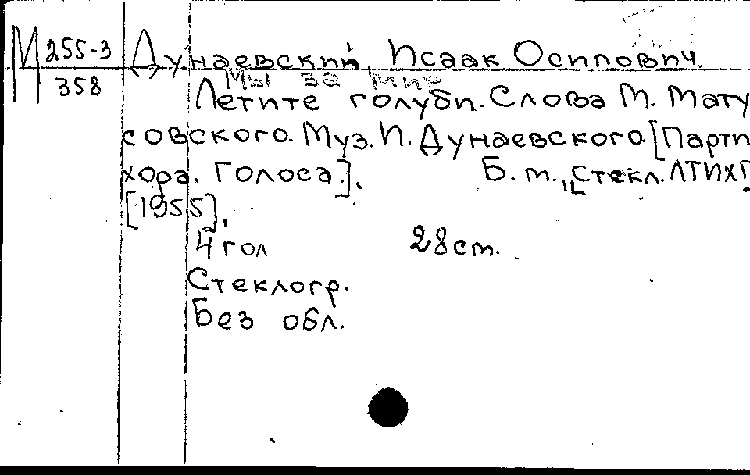 М 255-3 Дунаевский, Исаак Осипович.
358 Мы за мир
Летите голуби. Слова М. Мату
совского. Муз. И. Дунаевского. [Парти
хора. Голоса].    Б. м., Стекл. ЛТИХП
[1955].
4 гол    28 cm.
Стеклогр.
Без обл.